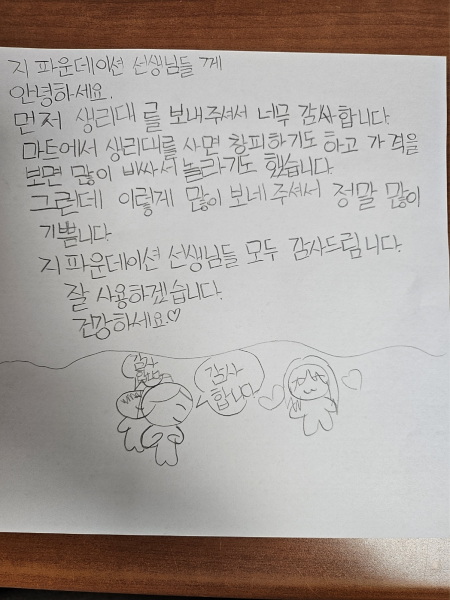 지 파운데이션 선생님들 께
안녕하세요.
먼저 생리대를 보내주셔서 너무 감사합니다.
마트에서 생리대를 사면 창피하기도 하고 가격을
보면 많이 비싸서 놀라기도 했습니다.
그런데 이렇게 많이 보네주셔서 정말 많이
기쁩니다
지 파운데이션 선생님들 모두 감사드립니다.
잘 사용하겠습니다.
건강하세요♡
감사
합니다
감사
합니다